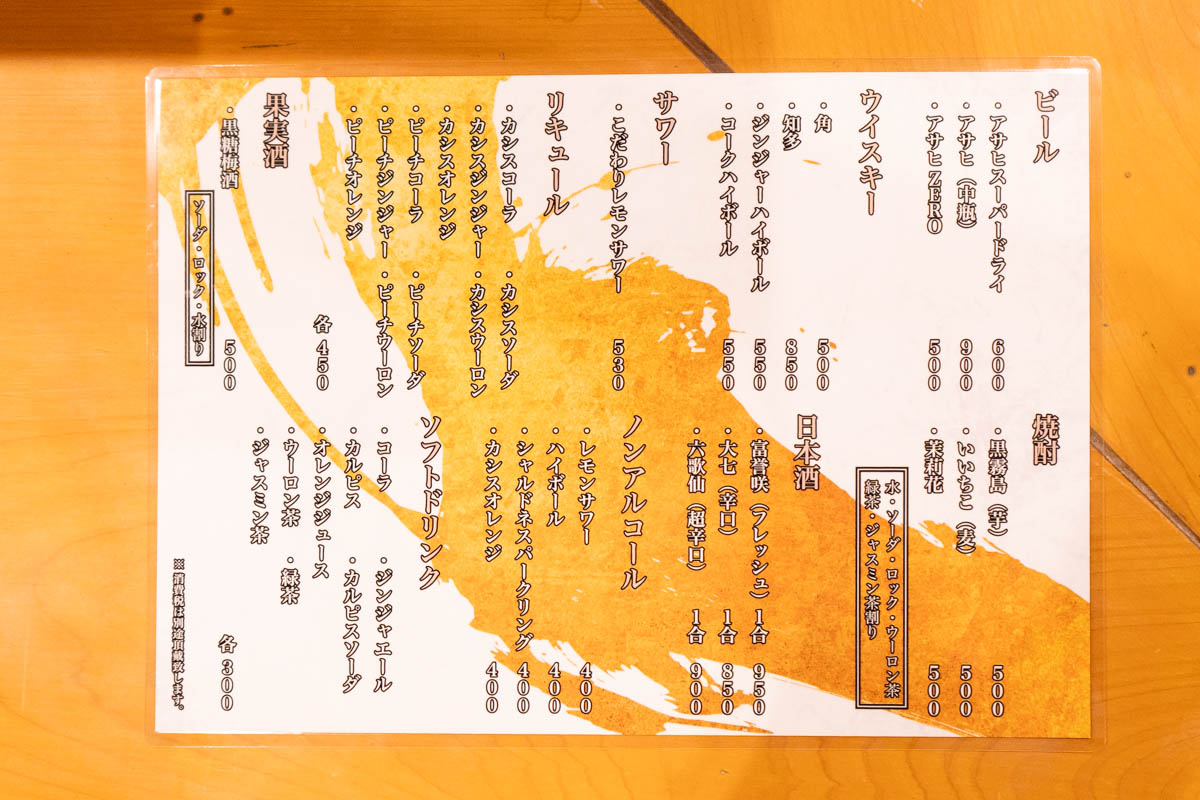 ビール
・アサヒスーパードライ 600
・アサヒ（中瓶） 900
・アサヒZERO 500
ウイスキー
・角 500
・知多 850
・ジンジャーハイボール 550
・コークハイボール 550
サワー
・こだわりレモンサワー 530
リキュール
・カシスコーラ ・カシスソーダ
・カシスジンジャー ・カシスウーロン
・カシスオレンジ
・ピーチコーラ ・ピーチソーダ
・ピーチジンジャー ・ピーチウーロン
・ピーチオレンジ
各450
果実酒
・黒糖梅酒 500
ソーダ・ロック・水割り
焼酎
・黒霧島（芋） 500
・いいちこ（麦） 500
・茉莉花 500
水・ソーダ・ロック・ウーロン茶
緑茶・ジャスミン茶割り
日本酒
・富誉咲（フレッシュ） 1合 950
・大七（辛口） 1合 850
・六歌仙（超辛口） 1合 900
ノンアルコール
・レモンサワー 400
・ハイボール 400
・シャルドネスパークリング 400
・カシスオレンジ 400
ソフトドリンク
・コーラ ・ジンジャエール
・カルピス ・カルピスソーダ
・オレンジジュース
・ウーロン茶 ・緑茶
・ジャスミン茶
各300
※消費税は別途頂戴致します。